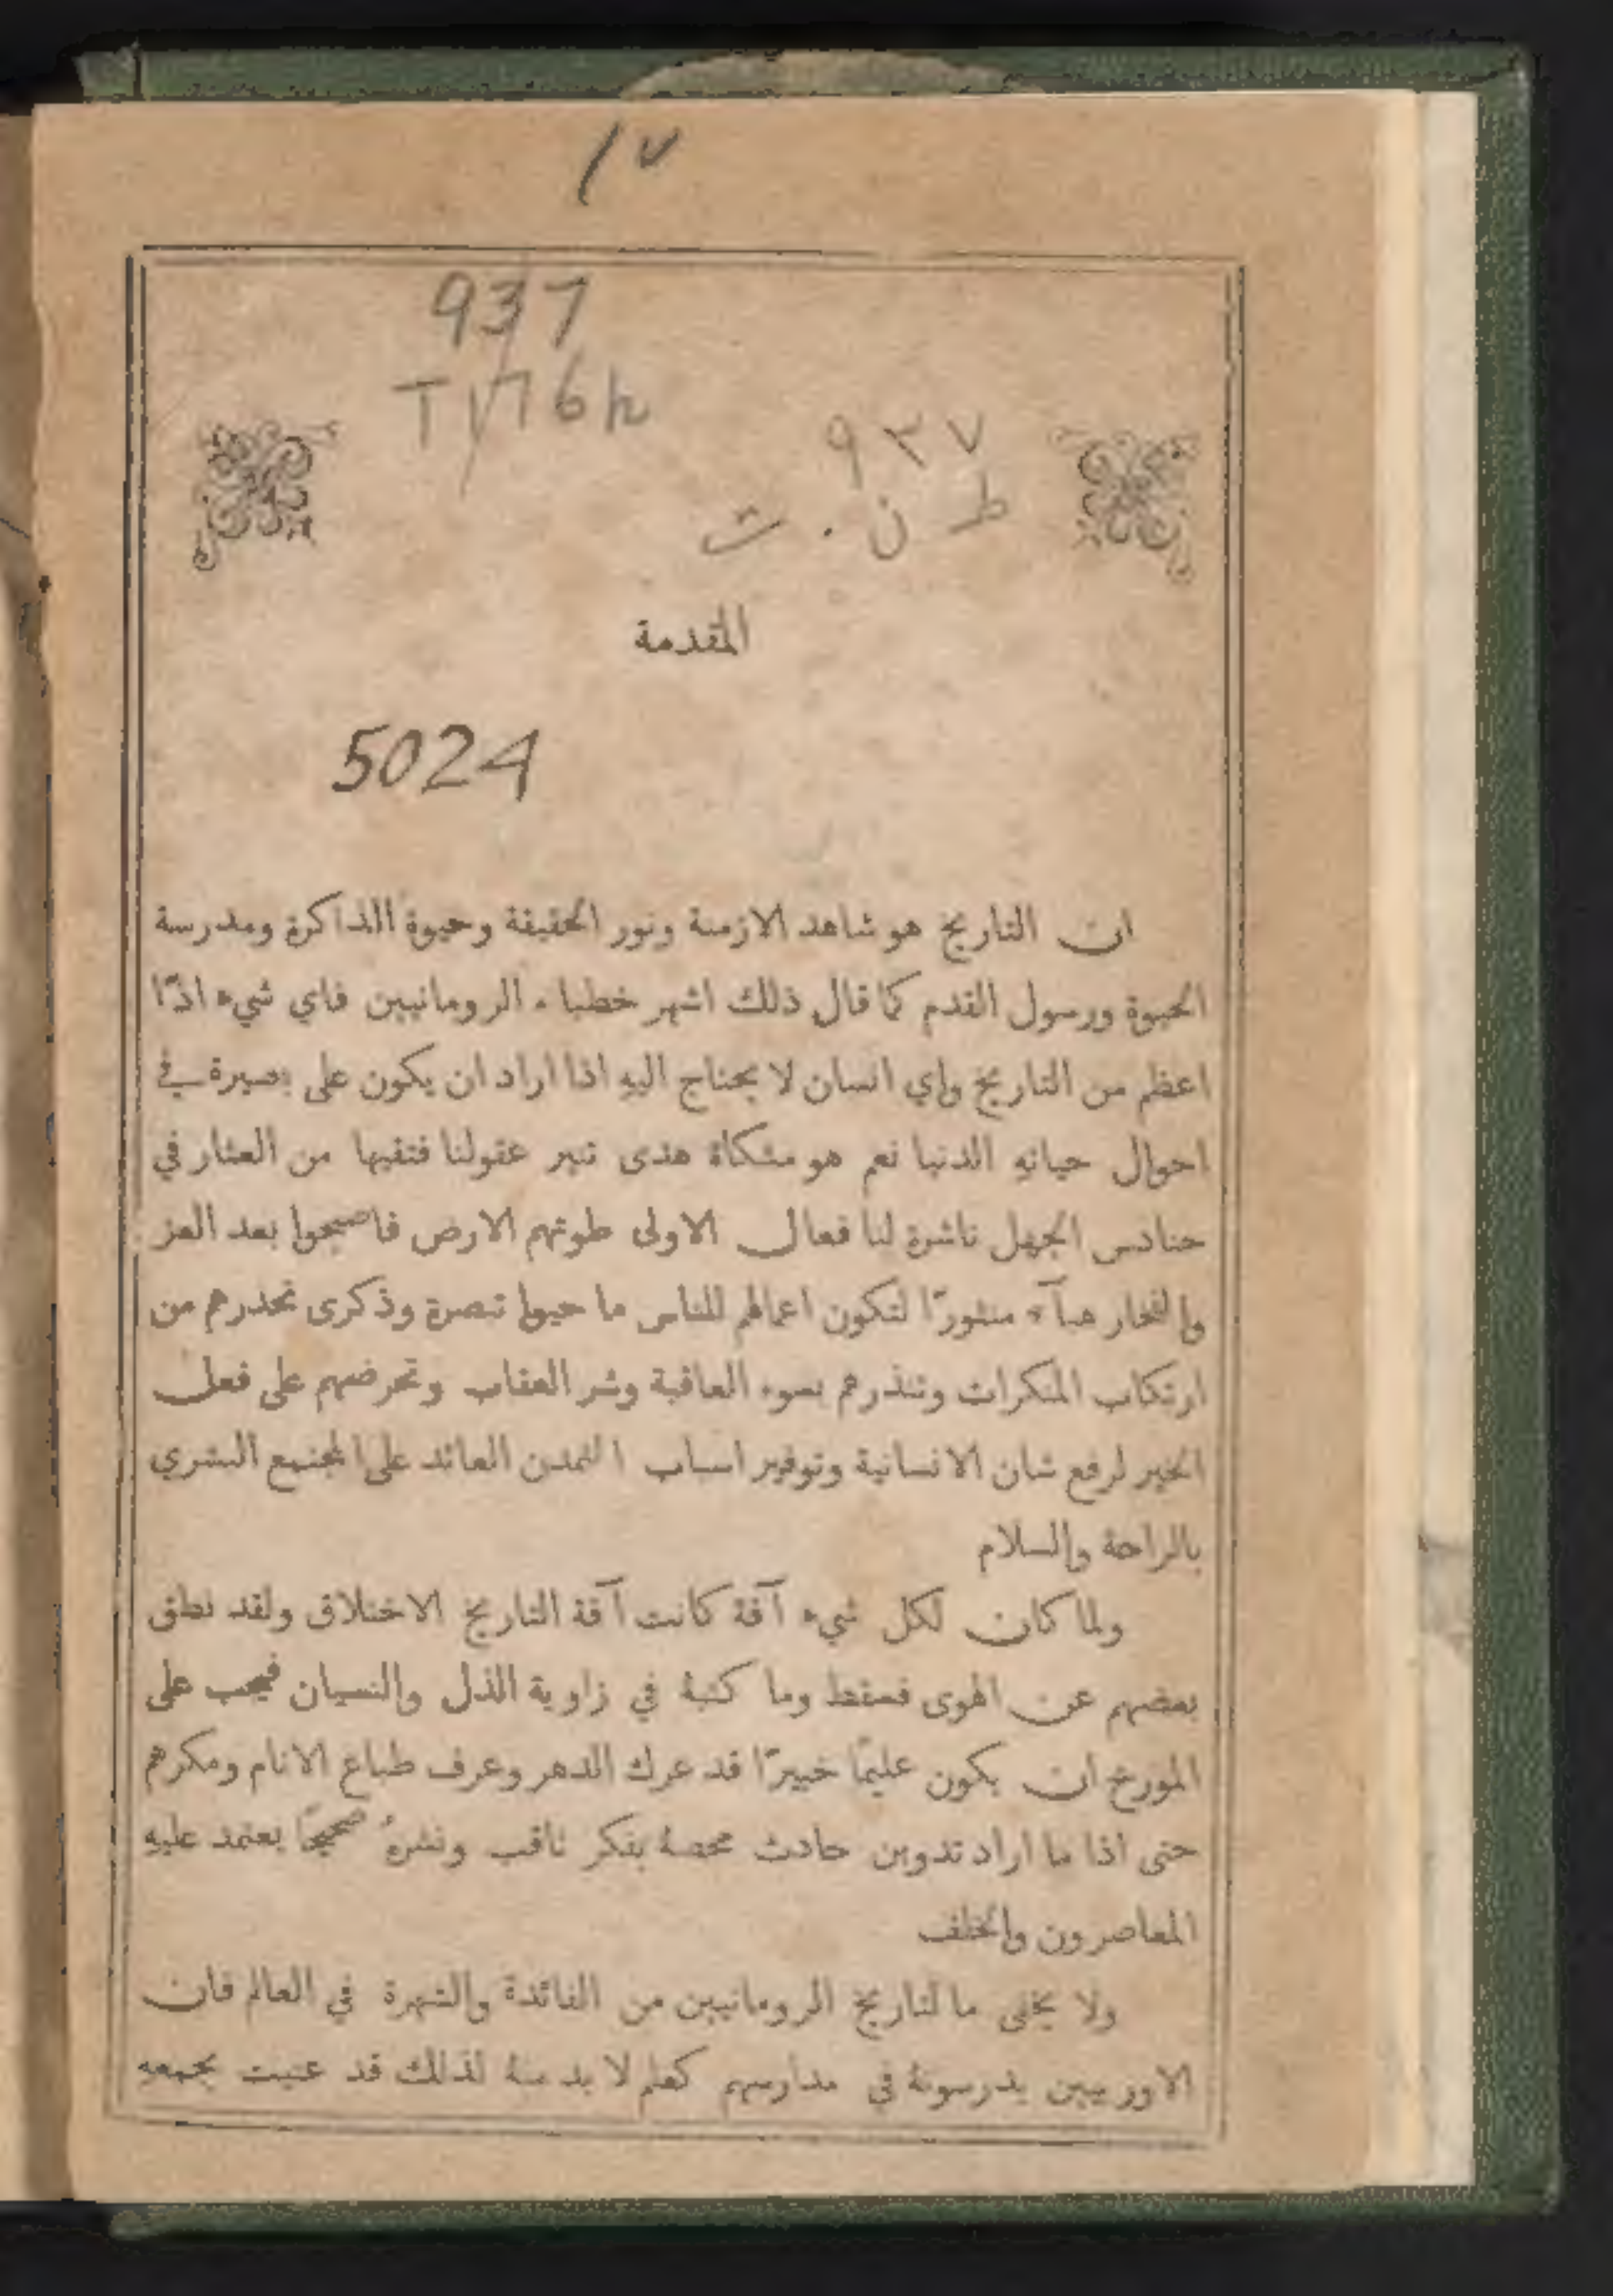 ١٧
937
T176h
٩٣٧
ط ن . ت
المقدمة
5024
ان التاريخ هو شاهد الازمنة ونور الحقيقة وحيوة الذاكرة ومدرسة
الحيوة ورسول القدم كما قال ذلك اشهر خطباء الرومانيين فاي شيء اذًا
اعظم من التاريخ واي انسان لا يحتاج اليهِ اذا اراد ان يكون على بصيرة في
احوال حياتهِ الدنيا نعم هو مشكاة هدى تنير عقولنا فتقيها من العثار في
حنادس الجهل ناشرة لنا فعال الاولى طوتهم الارض فاصبحوا بعد العز
والفخار هبآء منثورًا لتكون اعمالهم للناس ما حيوا تبصرة وذكرى تحذرهم من
ارتكاب المنكرات وتنذرهم بسوء العاقبة وشر العقاب وتحرضهم على فعل
الخير لرفع شان الانسانية وتوفير اسباب التمدن العائد على المجتمع البشري
بالراحة والسلام
ولما كان لكل شيء آفة كانت آفة التاريخ الاختلاق ولقد نطق
بعضهم عن الهوى فسقط وما كتبهُ في زاوية الذل والنسيان فيجب على
المورخ ان يكون عليمًا خبيرًا قد عرك الدهر وعرف طباع الانام ومكرهم
حتى اذا ما اراد تدوين حادث محصهُ بفكر ثاقب ونشرهُ صحيحًا يعتمد عليهِ
المعاصرون والخلف
ولا يخفى ما لتاريخ الرومانيين من الفائدة والشهرة في العالم فان
الاوربيين يدرسونهُ في مدارسهم كعلم لا بد منهُ لذلك قد عنيت بجمعهِ